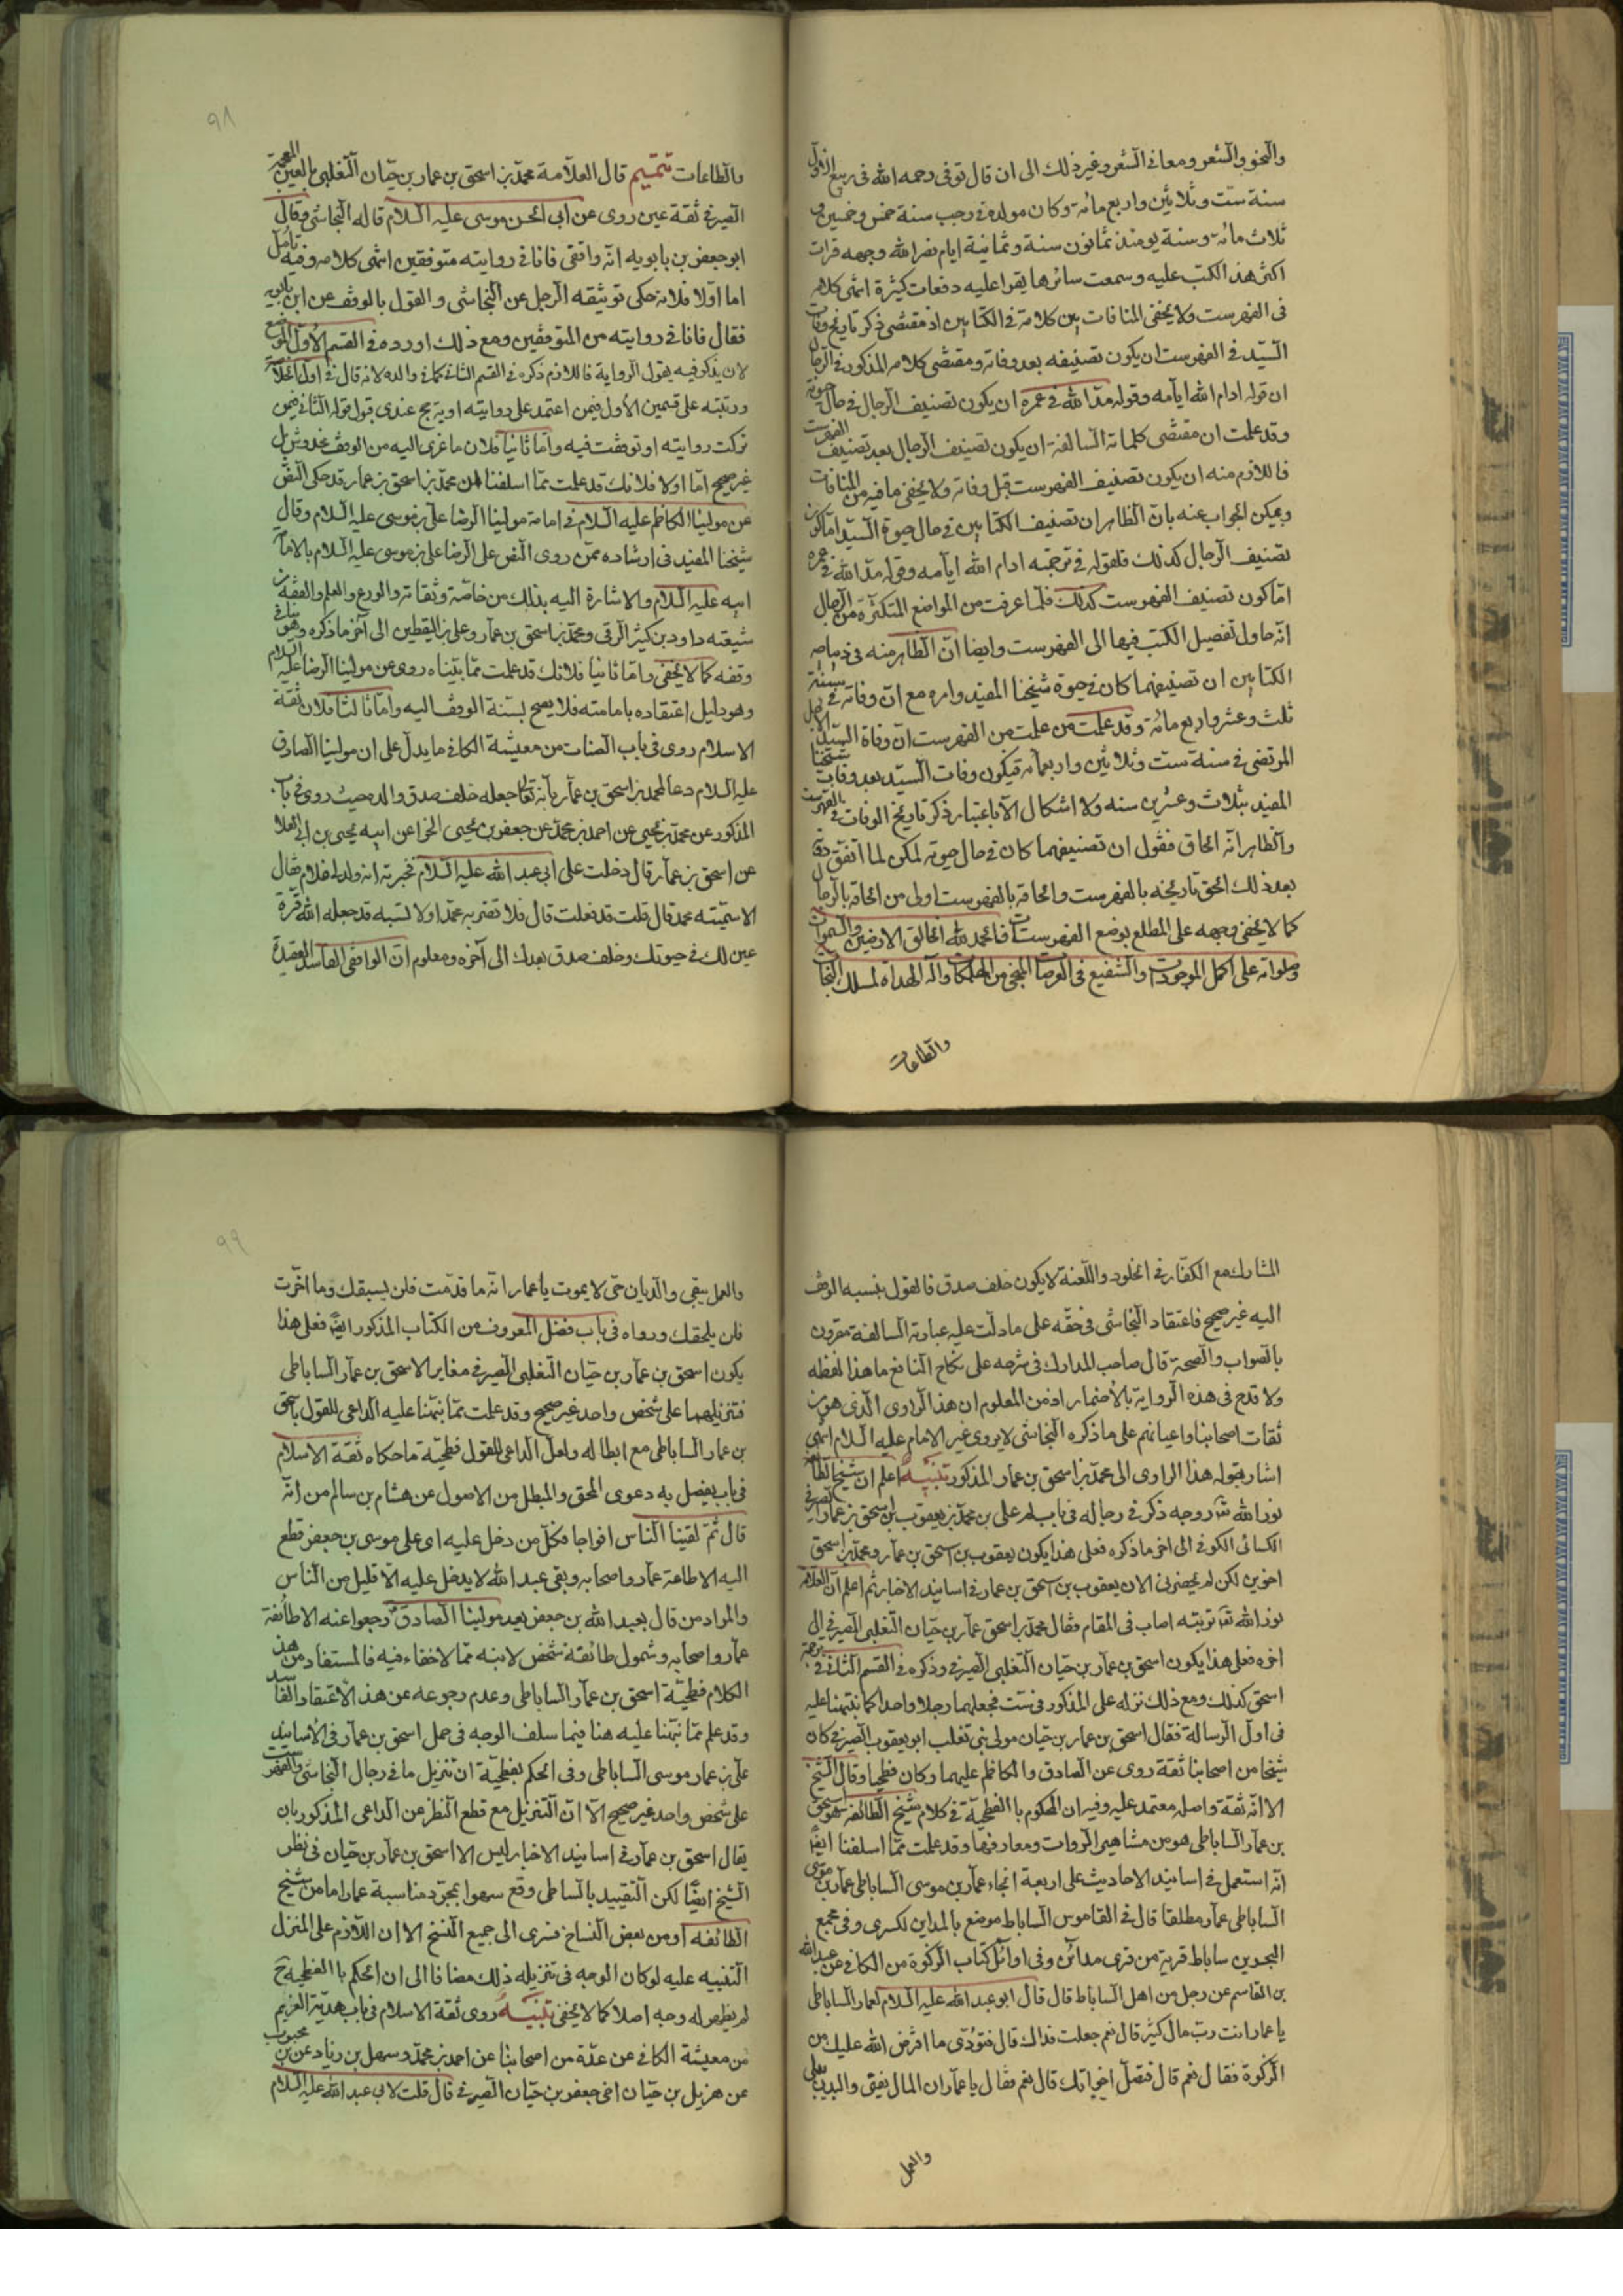 والنحو والشعر ومعانی الشعر وغیر ذلك الی ان قال توفی رحمه الله فی ربیع الاول
سنة ستّ وثلاثین واربع مائة وکان مولده فی رجب سنة خمس وخمسین و
ثلاث مائة وسنة یومئذ ثمانون سنة وثمانیة ایام نضر الله وجهه قرات
اکثر هذه الکتب علیه وسمعت سائرها یقرا علیه دفعات کثیرة انتهی کلامه
فی الفهرست ولا یخفی المنافات بین کلامه فی الکتابین اذ مقتضی ذکر تاریخ وفات
السیّد فی الفهرست ان یکون تصنیفه بعد وفاته ومقتضی کلامه المذکور فی الرجال
ان قوله ادام الله ایامه وقوله مدّ الله فی عمره ان یکون تصنیف الرجال فی حال حیوته
وقد علمت ان مقتضی کلماته السالفة ان یکون تصنیف الرجال بعد تصنیف الفهرست
فاللازم منه ان یکون تصنیف الفهرست قبل وفاته ولا یخفی ما فیه من المنافات
ویمکن الجواب عنه بانّ الظاهر ان تصنیف الکتابین فی حال حیوة السیّد اما کون
تصنیف الرجال کذلك فلقوله فی ترجمته ادام الله ایامه وقوله مدّ الله فی عمره
امّا کون تصنیف الفهرست کذلك فلما عرفت من المواضع المتکثّرة من الرجال
انّه حاول تفصیل الکتب فیها الی الفهرست وایضا انّ الظاهر منه فی دیباجه
الکتابین ان تصنیفهما کان فی حیوة شیخنا المفید وامره مع انّ وفاته فی سنة
ثلث وعشر واربع مائة وقد علمت من الفهرست ان وفاة السیّد الاجل
المرتضی فی سنة ست وثلاثین واربعمائه فیکون وفات السیّد بعد وفات شیخنا
المفید بثلاث وعشرین سنه ولا اشکال الا باعتبار ذکر تاریخ الوفات فی الفهرست
والظاهر انّه الحاق فنقول ان تصنیفهما کان فی حال حیوته لکن لما اتفق وفاته
بعد ذلك الحق تاریخه بالفهرست والحاقه بالفهرست اولی من الحاقه بالرجال
کما لا یخفی وجهه علی المطلع بوضع الفهرست فالحمد لله الخالق الارضین والسموات
وصلواته علی اکمل الموجودات والشفیع فی العرصات المنجی من المهلکات وآله الهداة لمسلك النجات
والطاعات
٩٨
والطاعات تتمیم قال العلّامة محمّد بن اسحق بن عمار بن حیّان التّغلبی بالغین المعجمة
الصیرفی ثقة عین روی عن ابی الحسن موسی علیه السلام قاله النجاشی وقال
ابو جعفر بن بابویه انّه واقفی فانا فی روایته متوقفین انتهی کلامه وفیه تامّل
اما اوّلا فلانه حکی توثیقه الرجل عن النجاشی والقول بالوقف عن ابن بابویه
فقال فانا فی روایته من المتوقفین ومع ذلك اورده فی القسم الاول الموضوع
لان یذکر فیه یقول الروایة فاللازم ذکره فی القسم الثانی کما فی والده لانه قال فی اوّل الخلاصة
ورتبته علی قسمین الأول فیمن اعتمد علی روایته او یترجح عندی قبول قوله الثانی فیمن
ترکت روایته او توقفت فیه وامّا ثانیا فلان ما عزی الیه من الوقف مخدوش بل
غیر صحیح امّا اولا فلانك قد علمت ممّا اسلفنا ان محمّد بن اسحق بن عمار قد حکی النصّ
عن مولینا الکاظم علیه السلام فی امامة مولینا الرضا علی بن موسی علیه السلام وقال
شیخنا المفید فی ارشاده ممّن روی النص علی الرضا علی بن موسی علیه السلام بالامامة
ابیه علیه السلام والاشارة الیه بذلك من خاصّته وثقاته والورع والعلم والفقه من
شیعته داود بن کثیر الرقی ومحمّد بن اسحق بن عمار وعلی بن الیقطین الی آخر ما ذکره وهو ینافی
وقفه کما لا یخفی واما ثانیا فلانك قد علمت ممّا بیّناه روی عن مولینا الرضا علیه السلام
وهو دلیل اعتقاده بامامته فلا یصح نسبة الوقف الیه وامّا ثالثا فلان ثقة
الاسلام روی فی باب الصناعات من معیشة الکافی ما یدلّ علی ان مولینا الصادق
علیه السلام دعا لمحمد بن اسحق بن عمار بانه تعالی جعله خلف صدق والده حیث روی فی باب
المذکور عن محمّد بن یحیی عن احمد بن محمّد عن جعفر بن یحیی الخزاعی عن ابیه یحیی بن ابی العلا
عن اسحق بن عمار قال دخلت علی ابی عبد الله علیه السلام فخبرته انه ولد لی غلام فقال
الا سمّیته محمد قال قلت قد فعلت قال فلا تضربه محمّدا ولا تسبه قد جعله الله قرة
عین لك فی حیوتك وخلف صدق بعدك الی آخره ومعلوم انّ الواقفی الفاسد العقیدة
المشارك مع الکفّار فی الخلود واللّعنة لا یکون خلف صدق فالقول بنسبه الوقف
الیه غیر صحیح فاعتقاد النجاشی فی حقّه علی ما دلّت علیه عبارته السالفة مقرون
بالصواب والصحة قال صاحب المدارك فی شرحه علی نکاح النافع ما هذا لفظه
ولا قدح فی هذه الروایة بالأضمار اذ من المعلوم ان هذا الراوی الّذی هو من
ثقات اصحابنا واعیانهم علی ما ذکره النجاشی لا یروی غیر الامام علیه السلام انتهی
اشار بقوله هذا الراوی الی محمّد بن اسحق بن عمار المذکور تنبیه اعلم ان شیخ الطائفه
نور الله تعالی روحه ذکر فی رجاله فی باب لم علی بن محمّد بن یعقوب بن اسحق بن عمار الصیرفی
الکسائی الکوفی الی اخر ما ذکره فعلی هذا یکون یعقوب بن اسحق بن عمار ومحمّد بن اسحق
اخوین لکن لم یحضرنی الان یعقوب بن اسحق بن عمار فی اسانید الاخبار ثم اعلم انّ العلامه
نور الله تعالی تربته اصاب فی المقام فقال محمّد بن اسحق عمار بن حیّان التغلبی الصیرفی الی
اخره فعلی هذا یکون اسحق بن عمار بن حیّان التغلبی الصیرفی وذکره فی القسم الثانی فی ترجمة
اسحق کذلك ومع ذلك نزله علی المذکور فی ست فجعلهما رجلا واحدا کما نبّهنا علیه
فی اول الرسالة فقال اسحق بن عمار بن حیّان مولی بنی تغلب ابو یعقوب الصیرفی کان
شیخا من اصحابنا ثقة روی عن الصادق والکاظم علیهما وکان فطحیا وقال الشیخ
الا انّه ثقة واصله معتمد علیه وفیه ان المحکوم با الفطحیّة فی کلام شیخ الطائفه هو اسحق
بن عمار الساباطی هو من مشاهیر الروات ومعارفها وقد علمت ممّا اسلفنا ایضا
انّه استعمل فی اسانید الاحادیث علی اربعة انحاء عمار بن موسی الساباطی عمار بن موسی
الساباطی عمار مطلقا قال فی القاموس الساباط موضع بالمداین لکسری وفی مجمع
البحرین ساباط قریة من قری مدائن وفی اوائل کتاب الزکوة من الکافی عن عبد الله
بن القاسم عن رجل من اهل الساباط قال قال ابو عبد الله علیه السلام لعمار الساباطی
یا عمار انت ربّ مال کثیر قال نعم جعلت فداك قال فتؤدّی ما افترض الله علیك من
الزکوة فقال نعم قال فتصل اخوانك قال نعم فقال یا عمار ان المال یفنی والبدن یبلی
والعمل
٩٩
والعمل یبقی والدیان حیّ لا یموت یا عمار انّه ما قدّمت فلن یسبقك وما اخّرت
فلن یلحقك ورواه فی باب فضل المعروف من الکتاب المذکور ایضا فعلی هذا
یکون اسحق بن عمار بن حیّان التّغلبی الصیرفی مغایر الاسحق بن عمار الساباطی
فتنزیلهما علی شخص واحد غیر صحیح وقد علمت ممّا نبّهنا علیه الداعی للقول باسحق
بن عمار الساباطی مع ابطاله ولعلّ الداعی للقول فطحیّة ما حکاه ثقة الاسلام
فی باب یفصل به دعوی المحق والمبطل من الاصول عن هشام بن سالم من انّه
قال ثمّ لقینا الناس افواجا فکلّ من دخل علیه ای علی موسی بن جعفر قطع
الیه الا طاعة عمار واصحابه وبقی عبد الله لا یدخل علیه الّا قلیل من النّاس
والمراد من قال بعبد الله بن جعفر بعد مولینا الصادق رجعوا عنه الا طائفة
عمار واصحابه وشمول طائفة شخص لابنه ممّا لا خفاء فیه فالمستفاد من هذه
الکلام فطحیّة اسحق بن عمار الساباطی وعدم رجوعه عن هذا الاعتقاد الفاسد
وقد علم ممّا نبّهنا علیه هنا فیما سلف الوجه فی حمل اسحق بن عمار فی الأسانید
علی بن عمار موسی الساباطی وفی الحکم بفطحیّة ان تنزیل ما فی رجال النجاشی والفهرست
علی شخص واحد غیر صحیح الّا انّ التنزیل مع قطع النظر عن الداعی المذکور بان
یقال اسحق بن عمار فی اسانید الاخبار لیس الا اسحق بن عمار بن حیّان فی نظر
الشیخ ایضا لکن التقیید بالساباطی وقع سهوا بمجرّد مناسبة عمار اما من شیخ
الطائفه او من بعض النساخ فسری الی جمیع النسخ الا ان اللّازم علی المنزل
التنبیه علیه لو کان الوجه فی تنزیله ذلك مضافا الی ان الحکم با الفطحیة ح
لم یظهر له وجه اصلا کما لا یخفی تنبیه روی ثقة الاسلام فی باب هدیّة الغریم
من معیشة الکافی عن عدّة من اصحابنا عن احمد بن محمّد وسهل بن زیاد عن بن محبوب
عن هزیل بن حیّان اخی جعفر بن حیّان الصیرفی قال قلت لابی عبد الله علیه السلام